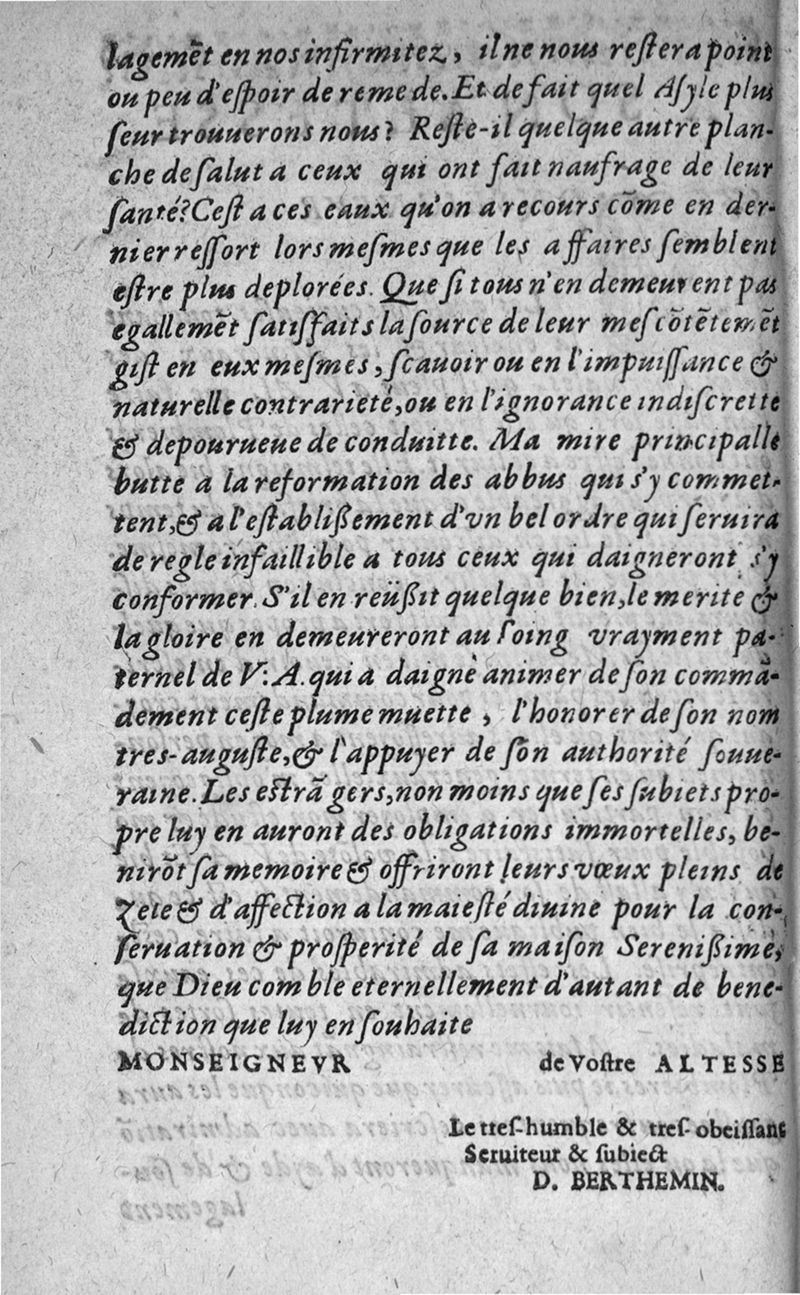 lagemēt en nos infirmitez, il ne nous restera point
ou peu d'espoir de remede. Et de fait quel Asyle plus
seur trouuerons nous? Reste-il quelque autre plan-
che de salut a ceux qui ont fait naufrage de leur
santé? Cest a ces eaux qu'on a recours cōme en der-
nier ressort lors mesmes que les affaires semblent
estre plus deplorées. Que si tous n'en demeurent pas
egallemēt satisfaits la source de leur mescōtētemēt
gist en eux mesmes, scauoir ou en l'impuissance &
naturelle contrarieté, ou en l'ignorance indiscrette
& depourueue de conduitte. Ma mire principalle
butte a la reformation des abbus qui s'y commet-
tent, & a l'establissement d'vn bel ordre qui seruira
de regle infaillible a tous ceux qui daigneront s'y
conformer. S'il en reüssit quelque bien, le merite &
la gloire en demeureront au soing vrayment pa-
ternel de V. A. qui a daignè animer de son commā-
dement ceste plume muette, l'honorer de son nom
tres-auguste, & l'appuyer de son authorité souue-
raine. Les estrāgers, non moins que ses subiets pro-
pre luy en auront des obligations immortelles, be-
nirōt sa memoire & offriront leurs vœux pleins de
zele & d'affection a la maiesté diuine pour la con-
seruation & prosperité de sa maison Serenissime,
que Dieu comble eternellement d'autant de bene-
diction que luy en souhaite
MONSEIGNEVR de Vostre ALTESSE
Le tres-humble & tres-obeissant
Seruiteur & subiect
D. BERTHEMIN.